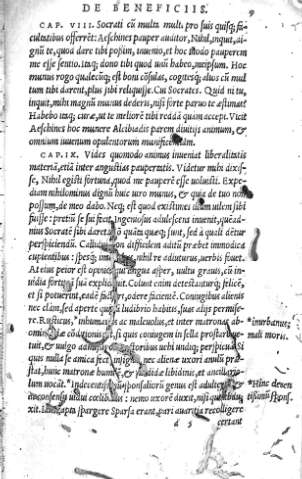 DE BENEFICIIS. 9
CAP. VIII. Socrati cũ multa multi pro suis quisq; fa-
cultatibus offerrẽt: Aeschines pauper auditor, Nihil, inquit, di-
gnũ te, quod dare tibi possim, inuenio, et hoc modo pauperem
me esse sentio. Itaq; dono tibi quod unũ habeo, meipsum. Hoc
munus rogo qualecũq; est boni cõsulas, cogitesq; alios cũ mul
tum tibi darent, plus sibi reliquisse. Cui Socrates. Quid ni tu,
inquit, mihi magnũ munus dederis, nisi forte paruo te æstimas?
Habebo itaq; curæ, ut te meliorẽ tibi reddã quàm accepi. Vicit
Aeschines hoc munere Alcibiadis parem diuitijs animum, &
omnium iuuenum opulentorum munificentiam.
CAP. IX. Vides quomodo animus inueniat liberalitatis
materiã, etiã inter angustias paupertatis. Videtur mihi dixis-
se, Nihil egisti fortuna, quod me pauperẽ esse uoluisti. Expe-
diam nihilominus dignũ huic uiro munus, & quia de tuo non
possum, de meo dabo. Neq; est quod existimes illum uilem sibi
fuisse: pretiũ se sui fecit. Ingeniosus adulescens inuenit, quẽad-
modum Socratẽ sibi daret. Nõ quãti quæq; sunt, sed à quali dẽtur
perspiciendũ. Callidus non difficilem aditũ præbet immodica
cupientibus: spesq; improbas nihil re adiuturus, uerbis fouet.
At eius peior est opinio qui lingua asper, uultu grauis, cũ in-
uidia fortunã suã explicuit. Colunt enim detestanturq; felicẽ,
et si potuerint, eadẽ facere, odere faciente. Coniugibus alienis
nec clàm, sed apertè ludibrio habitis, suas alijs permise-
re. Rusticus, *inhumanus ac maleuolus, et inter matronas ab-
ominandæ cõditionis est, si quis coniugem in sella prostare ue-
tuit, & uulgo admissis inspectoribus uehi undiq; perspicuã. Si
quis nulla se amica fecit insignem, nec alienæ uxori annuũ præ-
stat, hunc matronæ humilẽ, & sordidæ libidinis, et ancillario-
lum uocãt. *Inde certissimũ sponsaliorũ genus est adulteriũ, &
in consensu uidui cælibatus: nemo uxorẽ duxit, nisi qui abdu-
xit. Iam rapta spargere Sparsa erant, pari auaritia recolligere
d 5 certant
*inurbanus,
mali moris.
*Hinc decen
tissimũ spons.